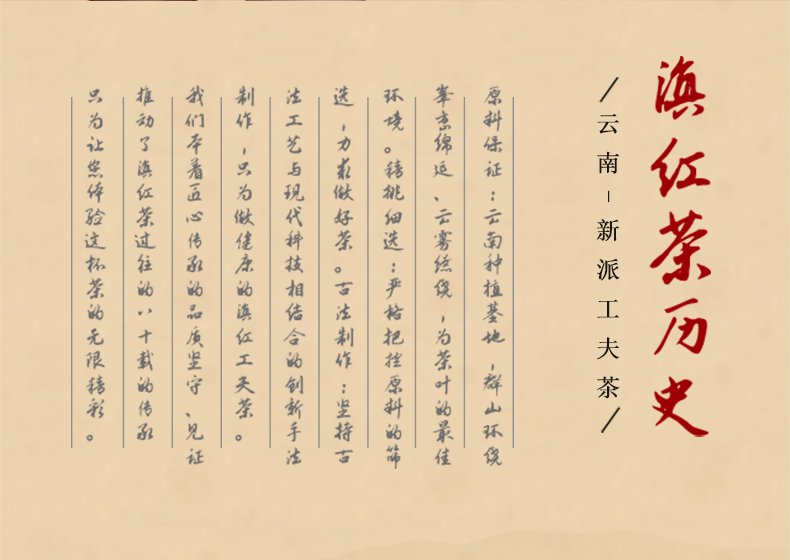 滇红茶历史
云南-新派工夫茶
原料保证：云南种植基地，群山环绕
峯峦绵延、云雾缭绕，为茶叶的最佳
环境。精挑细选：严格把控原料的筛
选，力求做好茶。古法制作：坚持古
法工艺与现代科技相结合的创新手法
制作，只为做健康的滇红工夫茶。
我们本着匠心传承的品质坚守、见证
推动了滇红茶过往的八十载的传承
只为让您体验这杯茶的无限精彩。